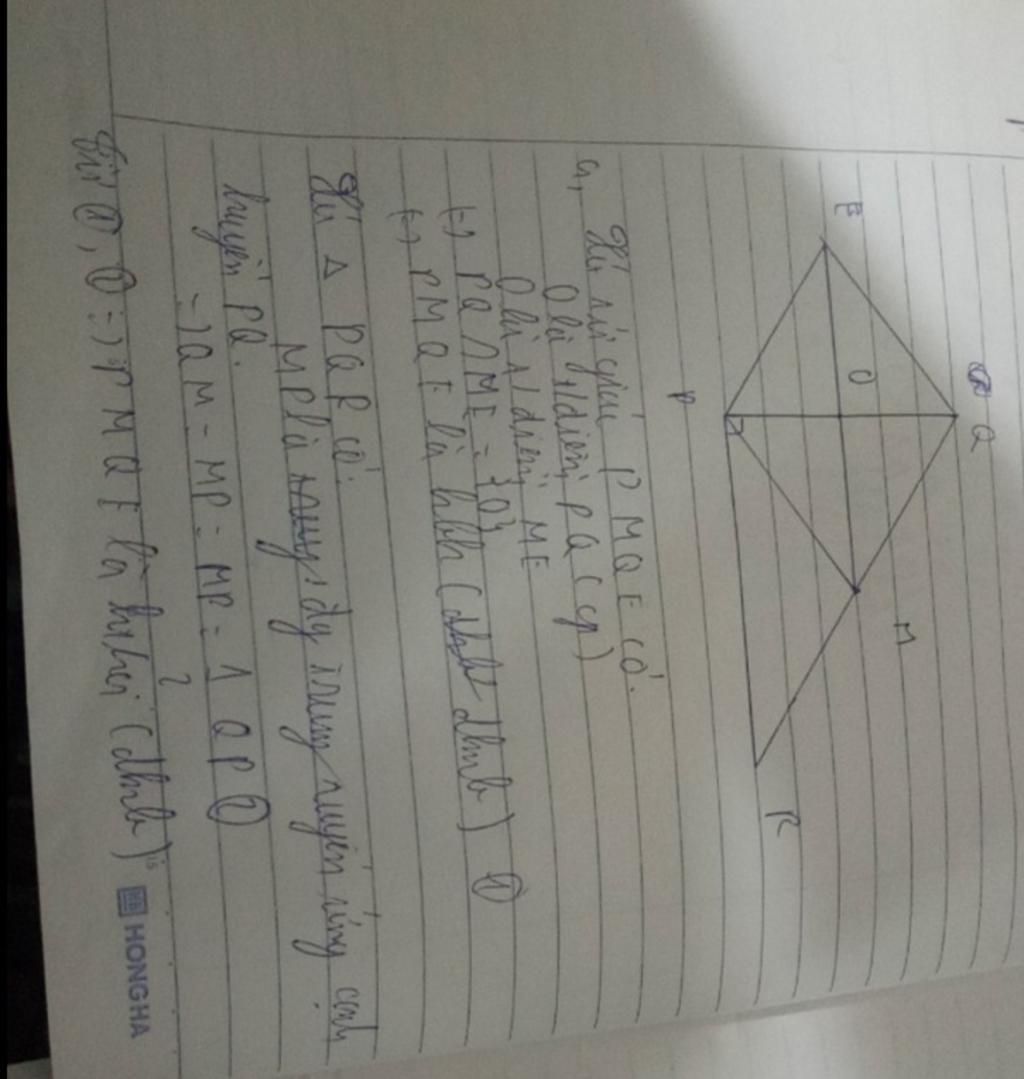 E
O
Q
P
M
R
a, Xét tứ giác PMQE có:
O là t/điểm PQ (gt)
O là t/điểm ME
PQ ∩ ME = {O}
(=) PMQE là hbh (dhnb) ①
Xét Δ PQR có:
MP là đg trung tuyến ứng cạnh
huyền PQ.
=) QM = MP = MR = 1 QP ②
2
Từ ①, ② =) PMQE là h.thoi (dhnb)
HONGHA